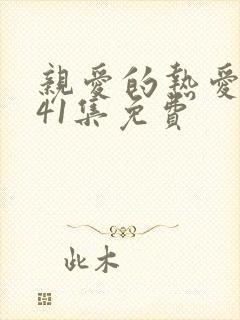 親愛的熱愛
41集免費
此木